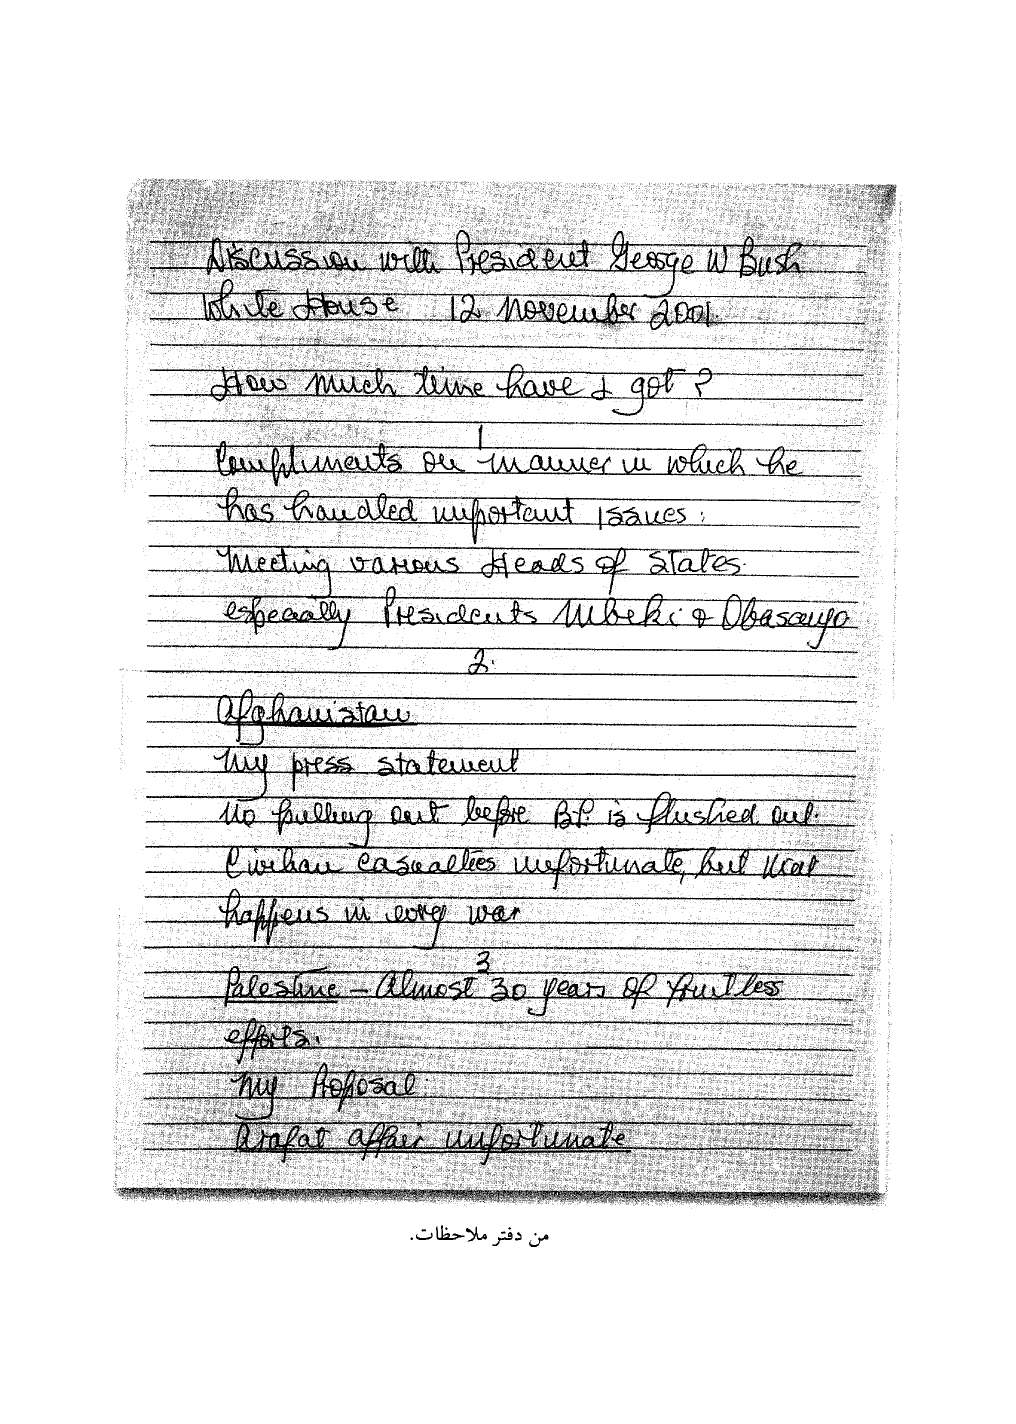 Discussion with President George W Bush
White House 12 November 2001.
How much time have I got?
1
Compliments on manner in which he
has handled important issues:
Meeting various Heads of States.
especially Presidents Mbeki & Obasanjo
2.
Afghanistan
My press statement
No pulling out before B.L. is flushed out.
Civilian casualties unfortunate, but that
happens in every war
3
Palestine – Almost 30 years of fruitless
efforts.
My Proposal.
Arafat affair unfortunate
من دفتر ملاحظات.